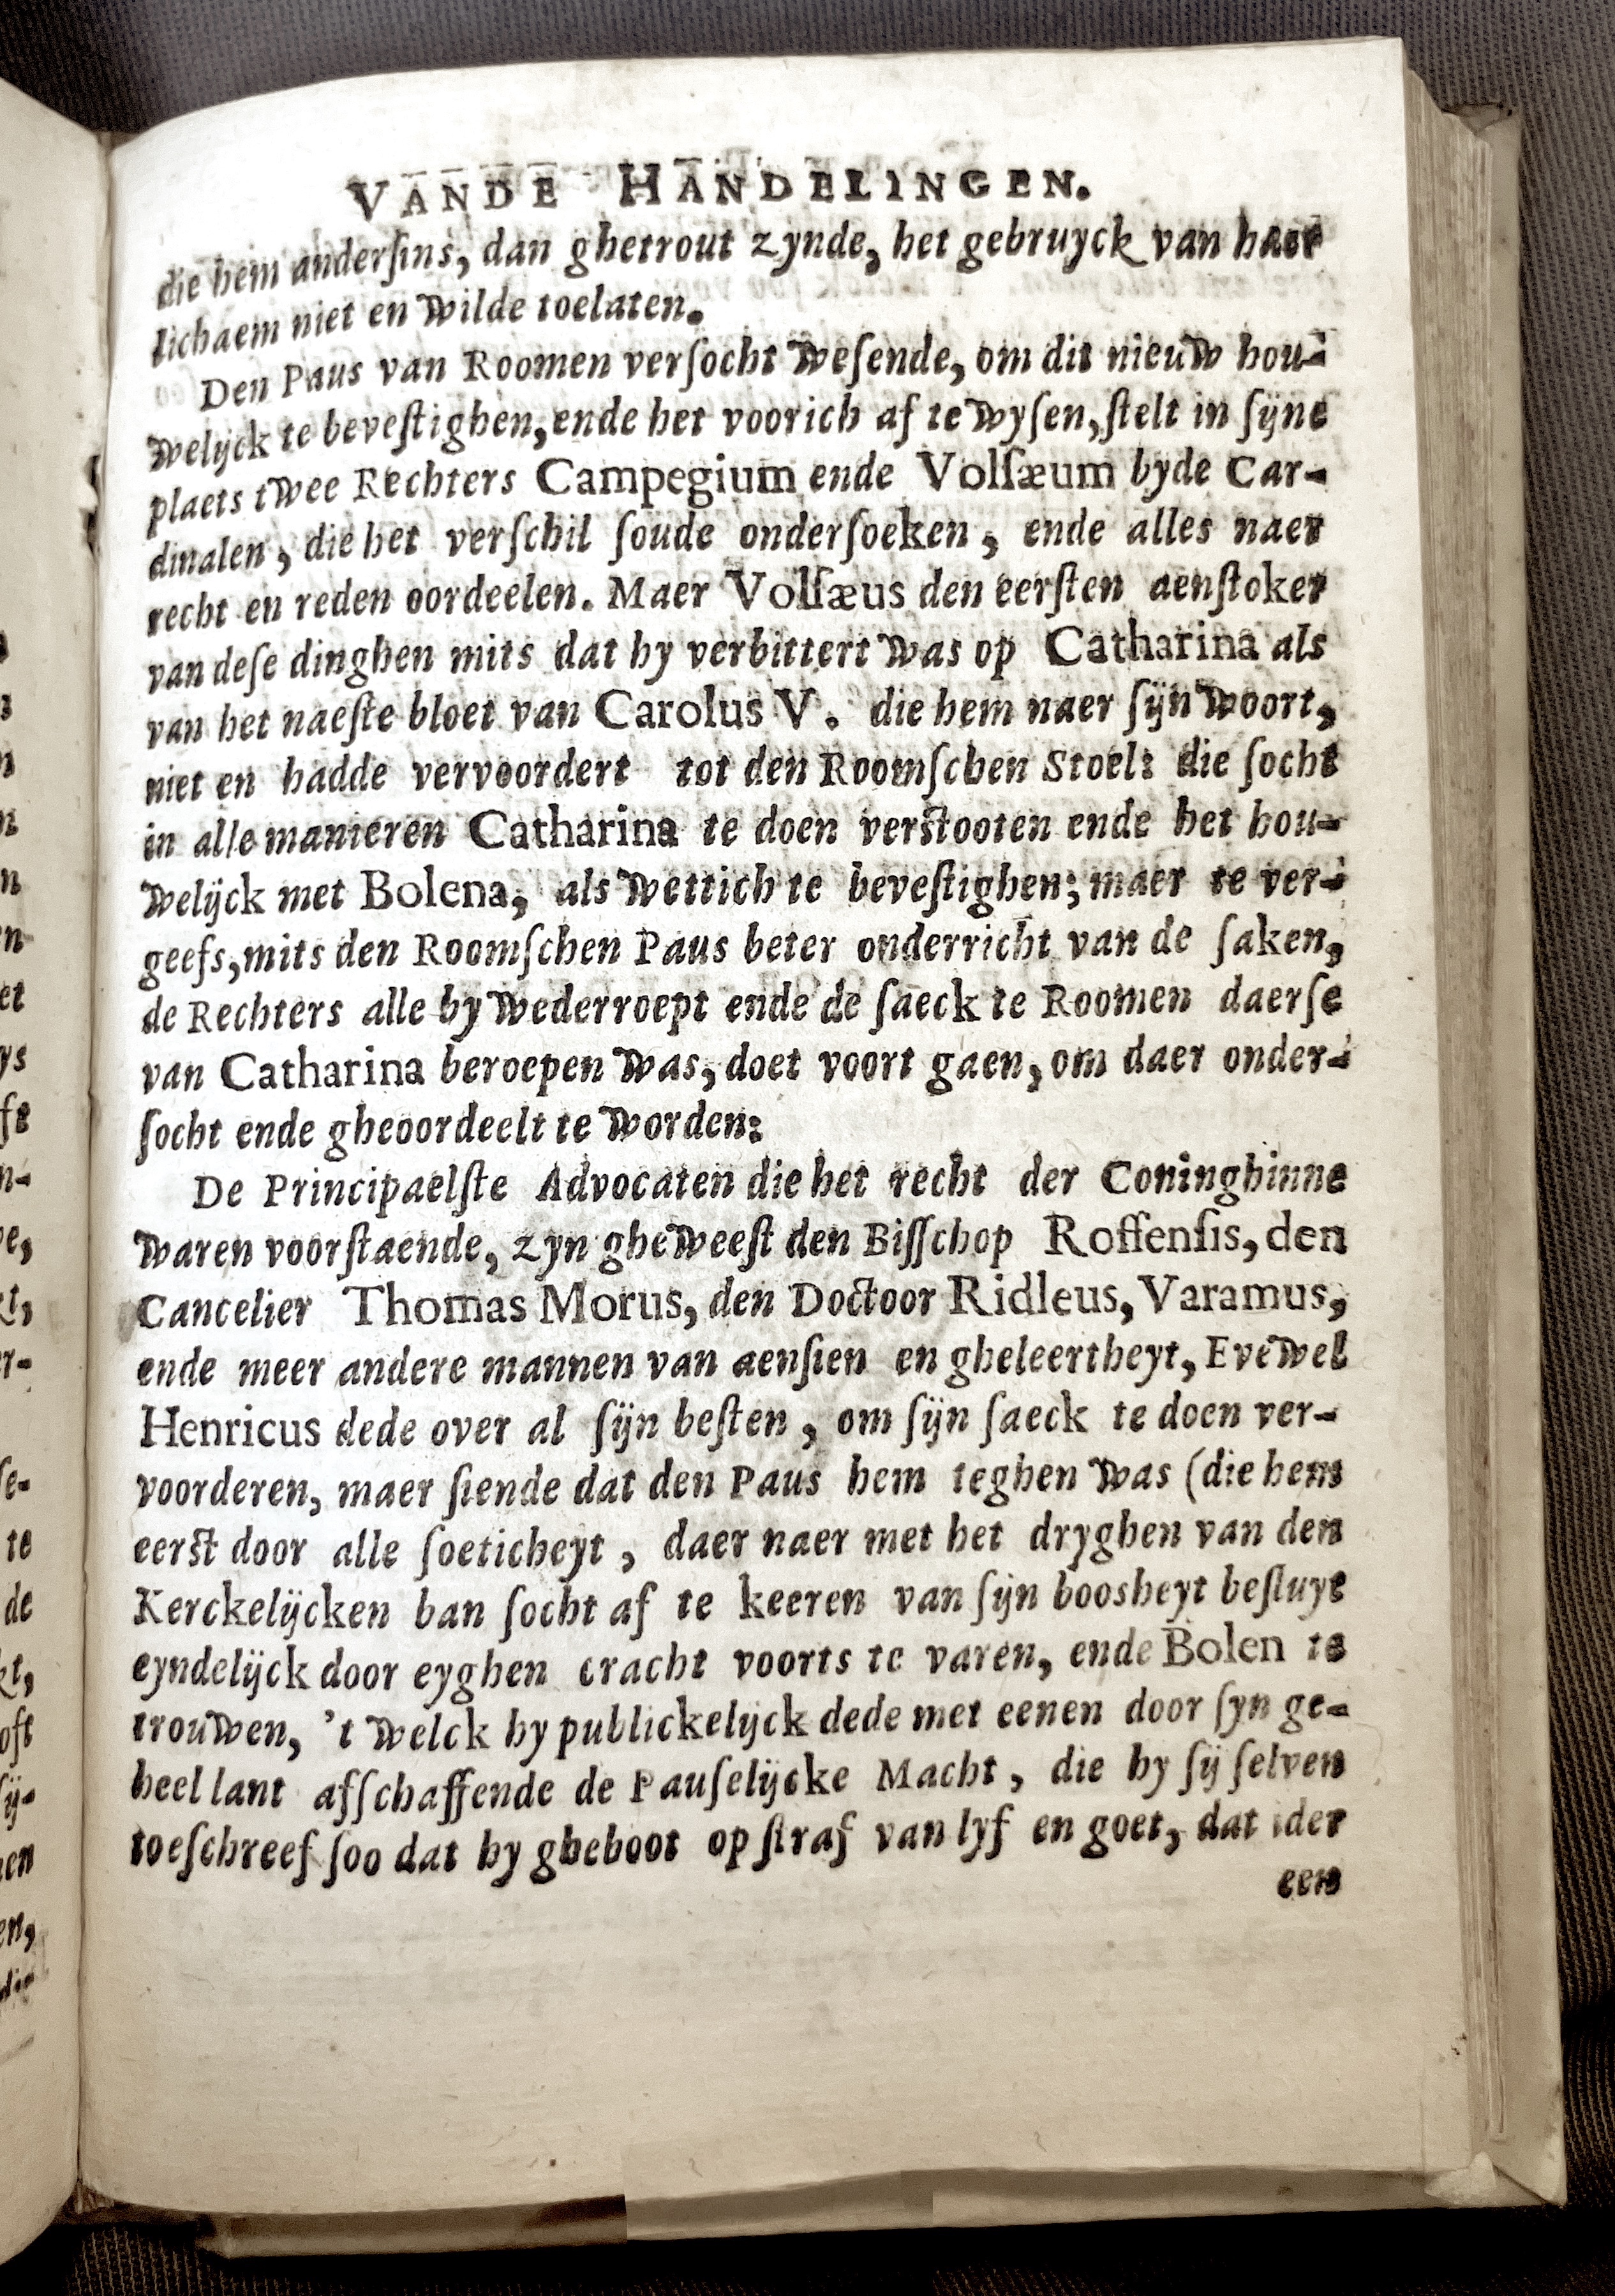 VANDE HANDELINGEN.
die hem anderſins, dan ghetrout zynde, het gebruyck van haer
lichaem niet en wilde toelaten.
Den Paus van Roomen verſocht weſende, om dit nieuw hou-
welijck te beveſtighen, ende het voorich af te wyſen, ſtelt in ſijne
plaets twee Rechters Campegium ende Volſæum byde Car-
dinalen, die het verſchil ſoude onderſoeken, ende alles naer
recht en reden oordeelen. Maer Volſæus den eerſten aenſtoker
van deſe dinghen mits dat hy verbittert was op Catharina als
van het naeſte bloet van Carolus V. die hem naer ſijn woort,
niet en hadde vervoordert tot den Roomſchen Stoel: die ſocht
in alle manieren Catharina te doen verſtooten ende het hou-
welijck met Bolena, als wettich te beveſtighen; maer te ver-
geefs, mits den Roomſchen Paus beter onderricht van de ſaken,
de Rechters alle by wederroept ende de ſaeck te Roomen daerſe
van Catharina beroepen was, doet voort gaen, om daer onder-
ſocht ende gheoordeelt te worden:
De Principaelſte Advocaten die het recht der Coninghinne
waren voorſtaende, zyn gheweeſt den Biſſchop Roffenſis, den
Cancelier Thomas Morus, den Doctoor Ridleus, Varamus,
ende meer andere mannen van aenſien en gheleertheyt, Evewel
Henricus dede over al ſijn beſten, om ſijn ſaeck te doen ver-
voorderen, maer ſiende dat den Paus hem teghen was (die hem
eerſt door alle ſoeticheyt, daer naer met het dryghen van den
Kerckelijcken ban ſocht af te keeren van ſijn boosheyt beſluyt
eyndelijck door eyghen cracht voorts te varen, ende Bolen te
trouwen, 't welck hy publickelijck dede met eenen door ſyn ge-
heel lant afſchaffende de Pauſelijcke Macht, die hy ſij ſelven
toeſchreef ſoo dat hy gheboot op ſtraf van lyf en goet, dat ider
een